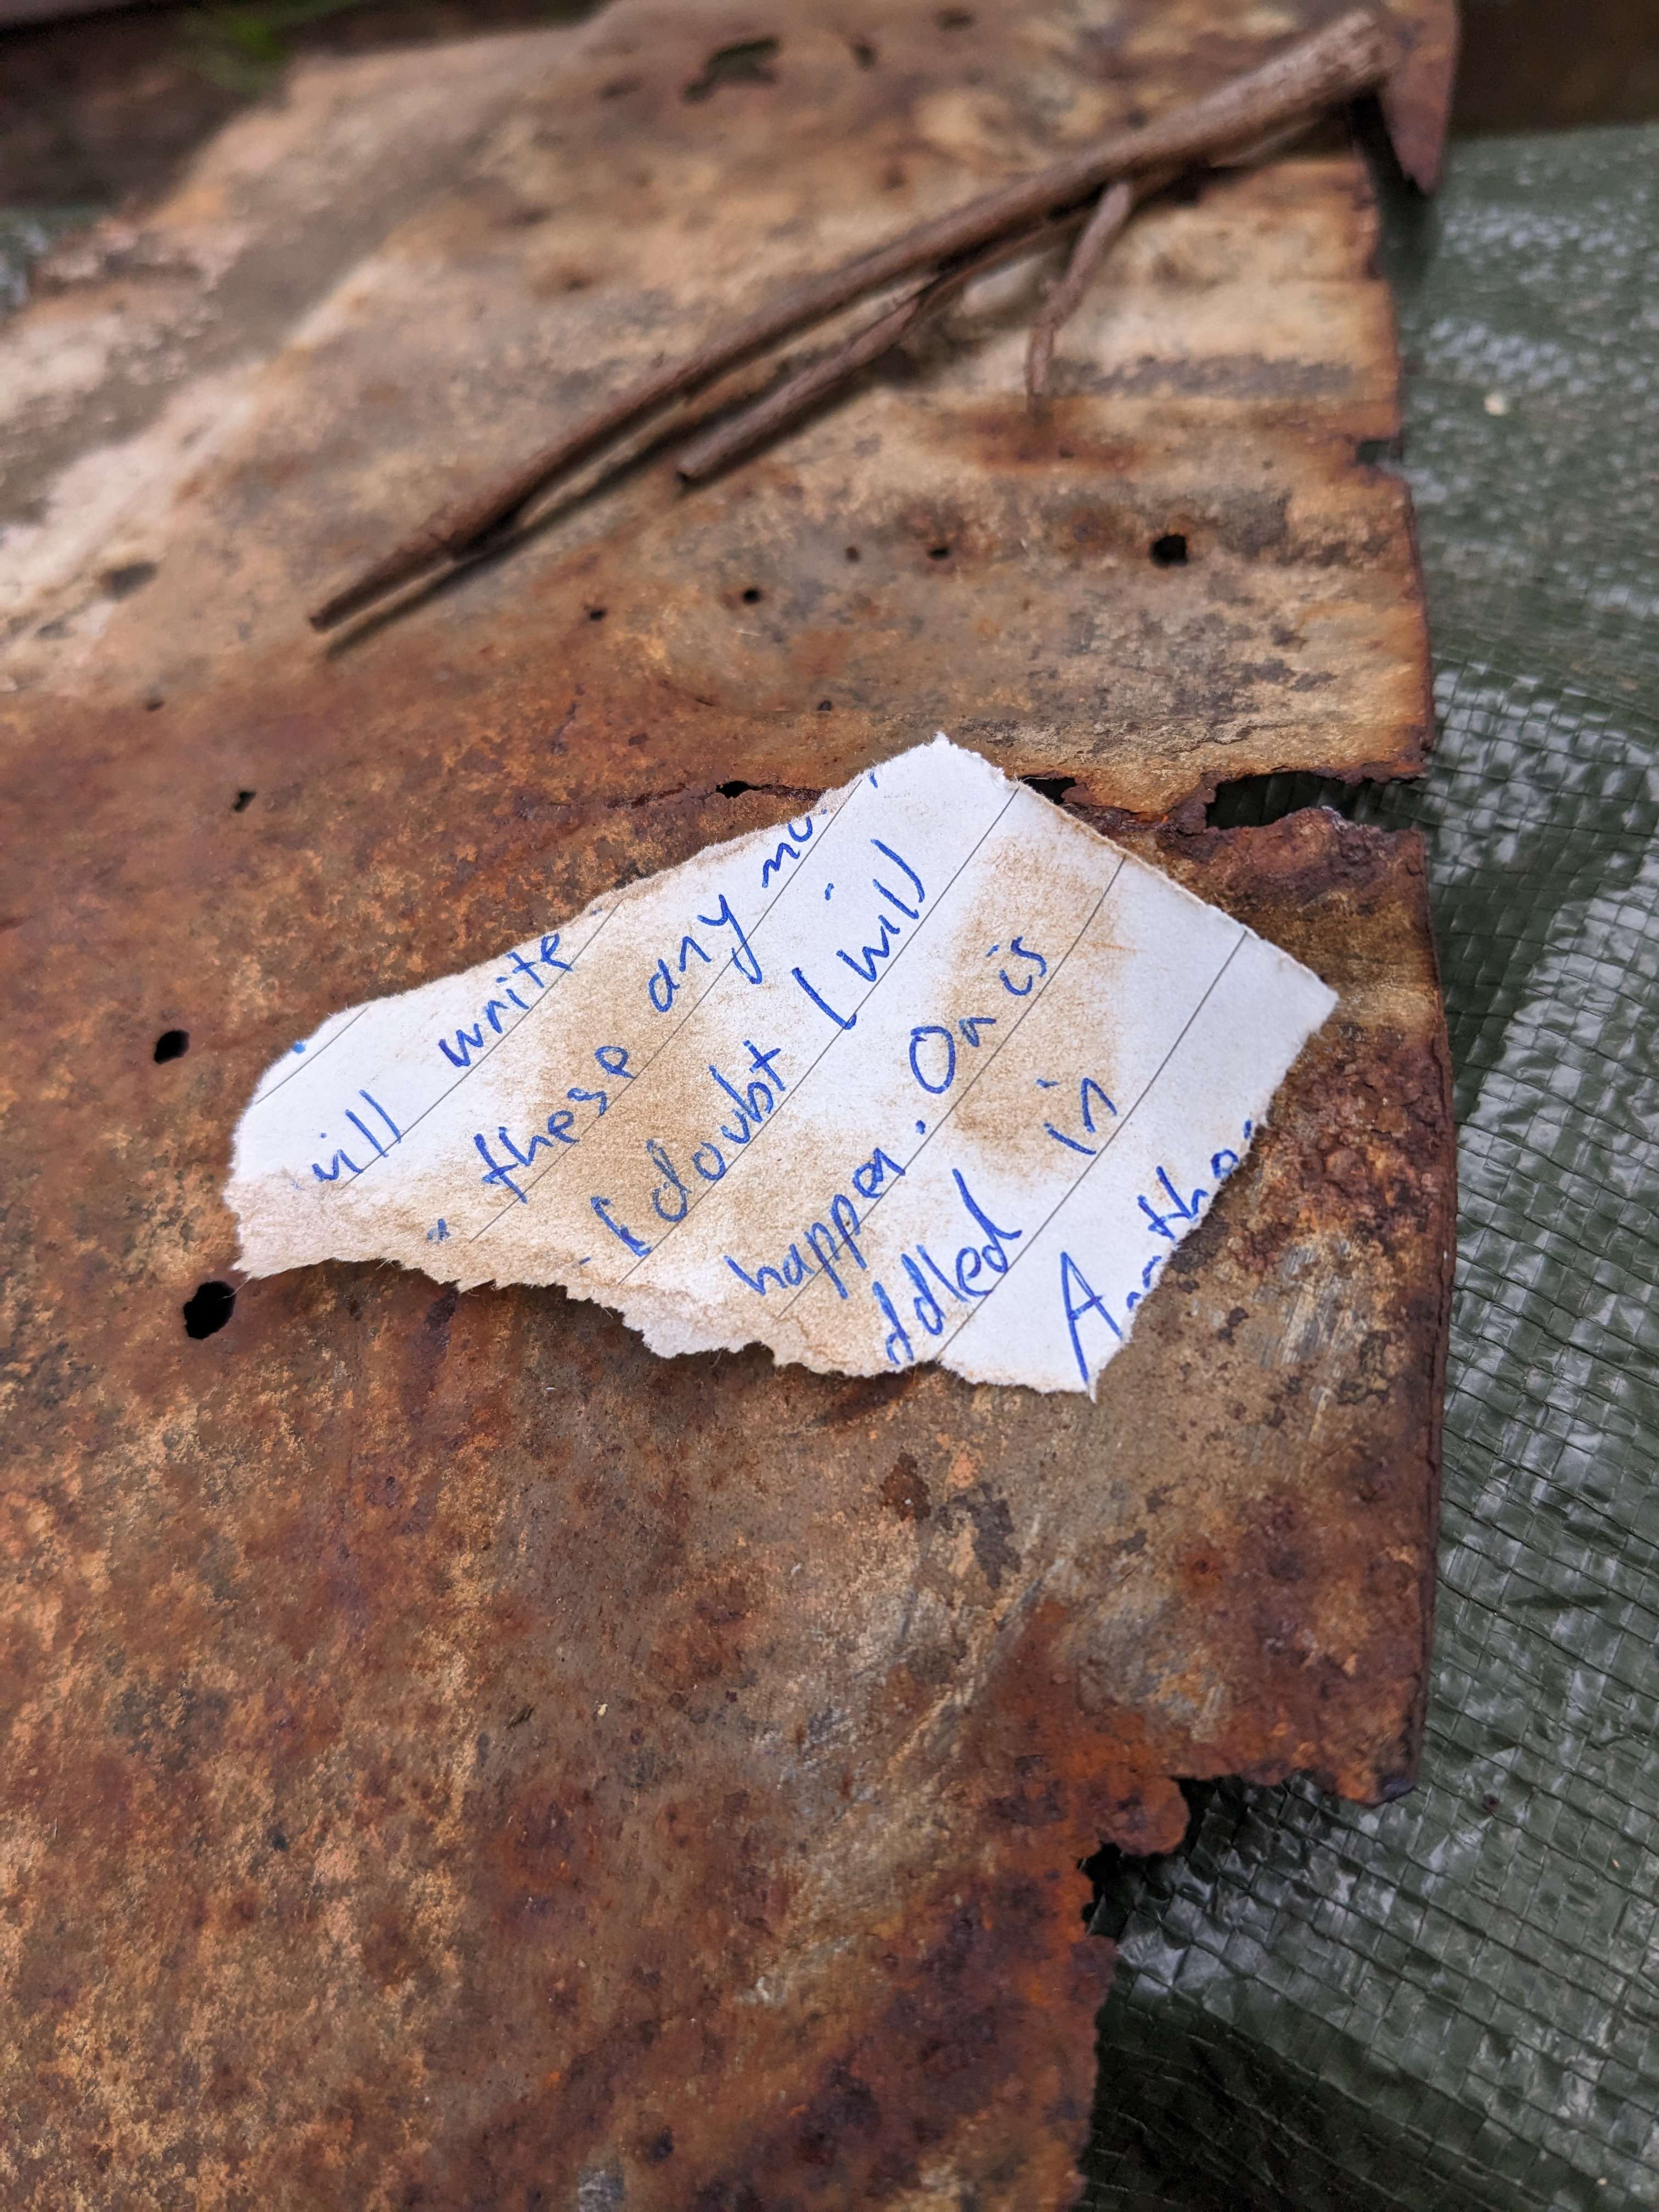 will write
these any mo
I doubt I will
happen. On is
ddled in
Anothe